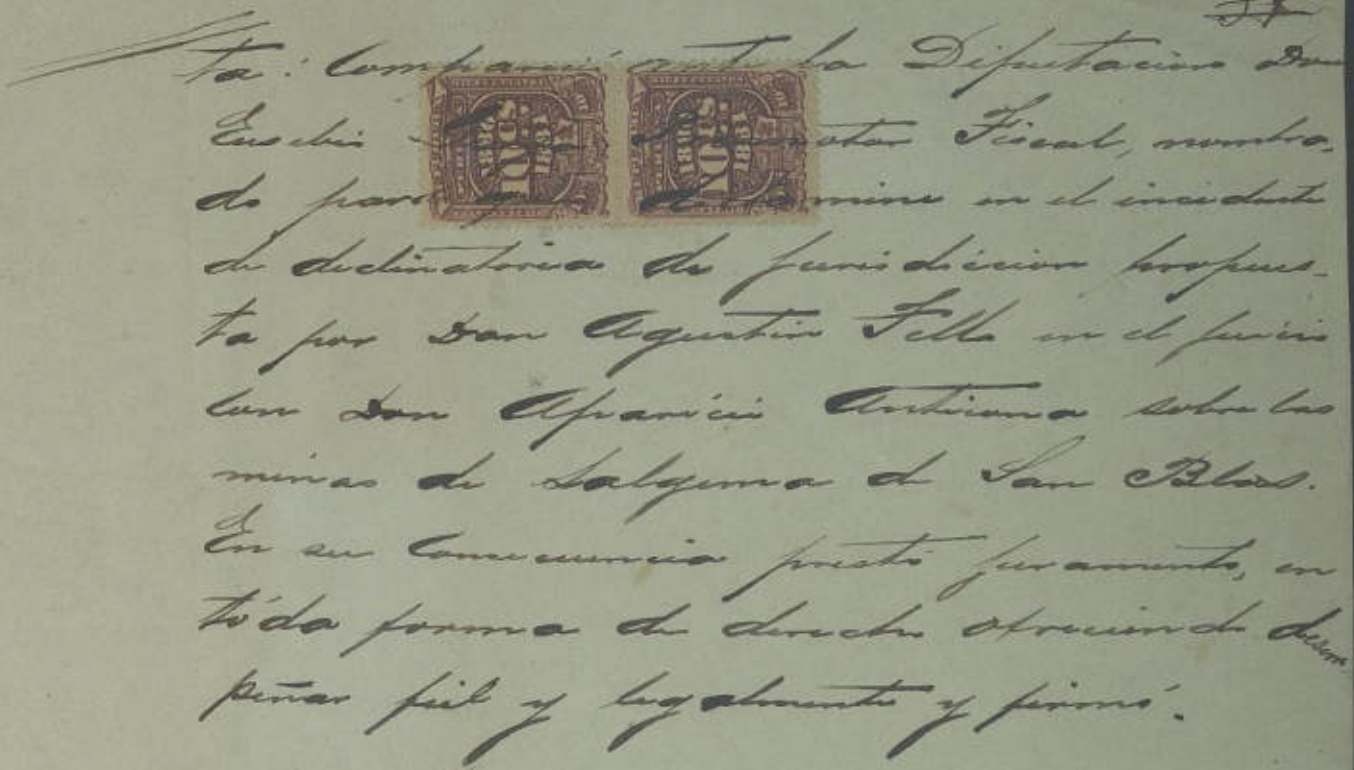 ta: Compareció ante la Diputacion Don
Eusebio Promotor Fiscal, nombra-
do para que dictamine en el incidente
de declinatoria de jurisdiccion propues-
ta por Don Agustin Tello en el juicio
con Don Aparicio Anticona sobre las
minas de Salgema de San Blas.
En su Consecuencia prestó juramento, en
toda forma de derecho ofreciendo desem
peñar fiel y legalmente y firmó.